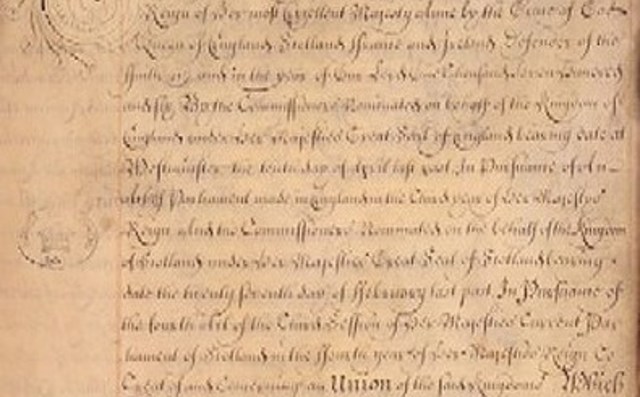 Reign of Her most Excellent Majesty Anne by the Grace of God
Queen of England Scotland ffrance and Ireland Defender of the
ffaith &c and in the year of Our Lord One Thousand Seven Hundred
and six By the Commissioners Nominated on behalf of the Kingdom of
England under Her Majesties Great Seal of England bearing date at
Westminster the tenth day of April last past In Pursuance of An
Parliament made in England in the third year of Her Majesties
Reign And the Commissioners Nominated on the behalf of the Kingdom
of Scotland under Her Majesties Great Seal of Scotland bearing
date the twenty seventh day of ffebruary last past In Pursuance of
the fourth Act of the third Session of Her Majesties Current Par
liament of Scotland in the ffourth year of Her Majesties Reign To
Treat of and Concerning an Union of the said Kingdoms Which